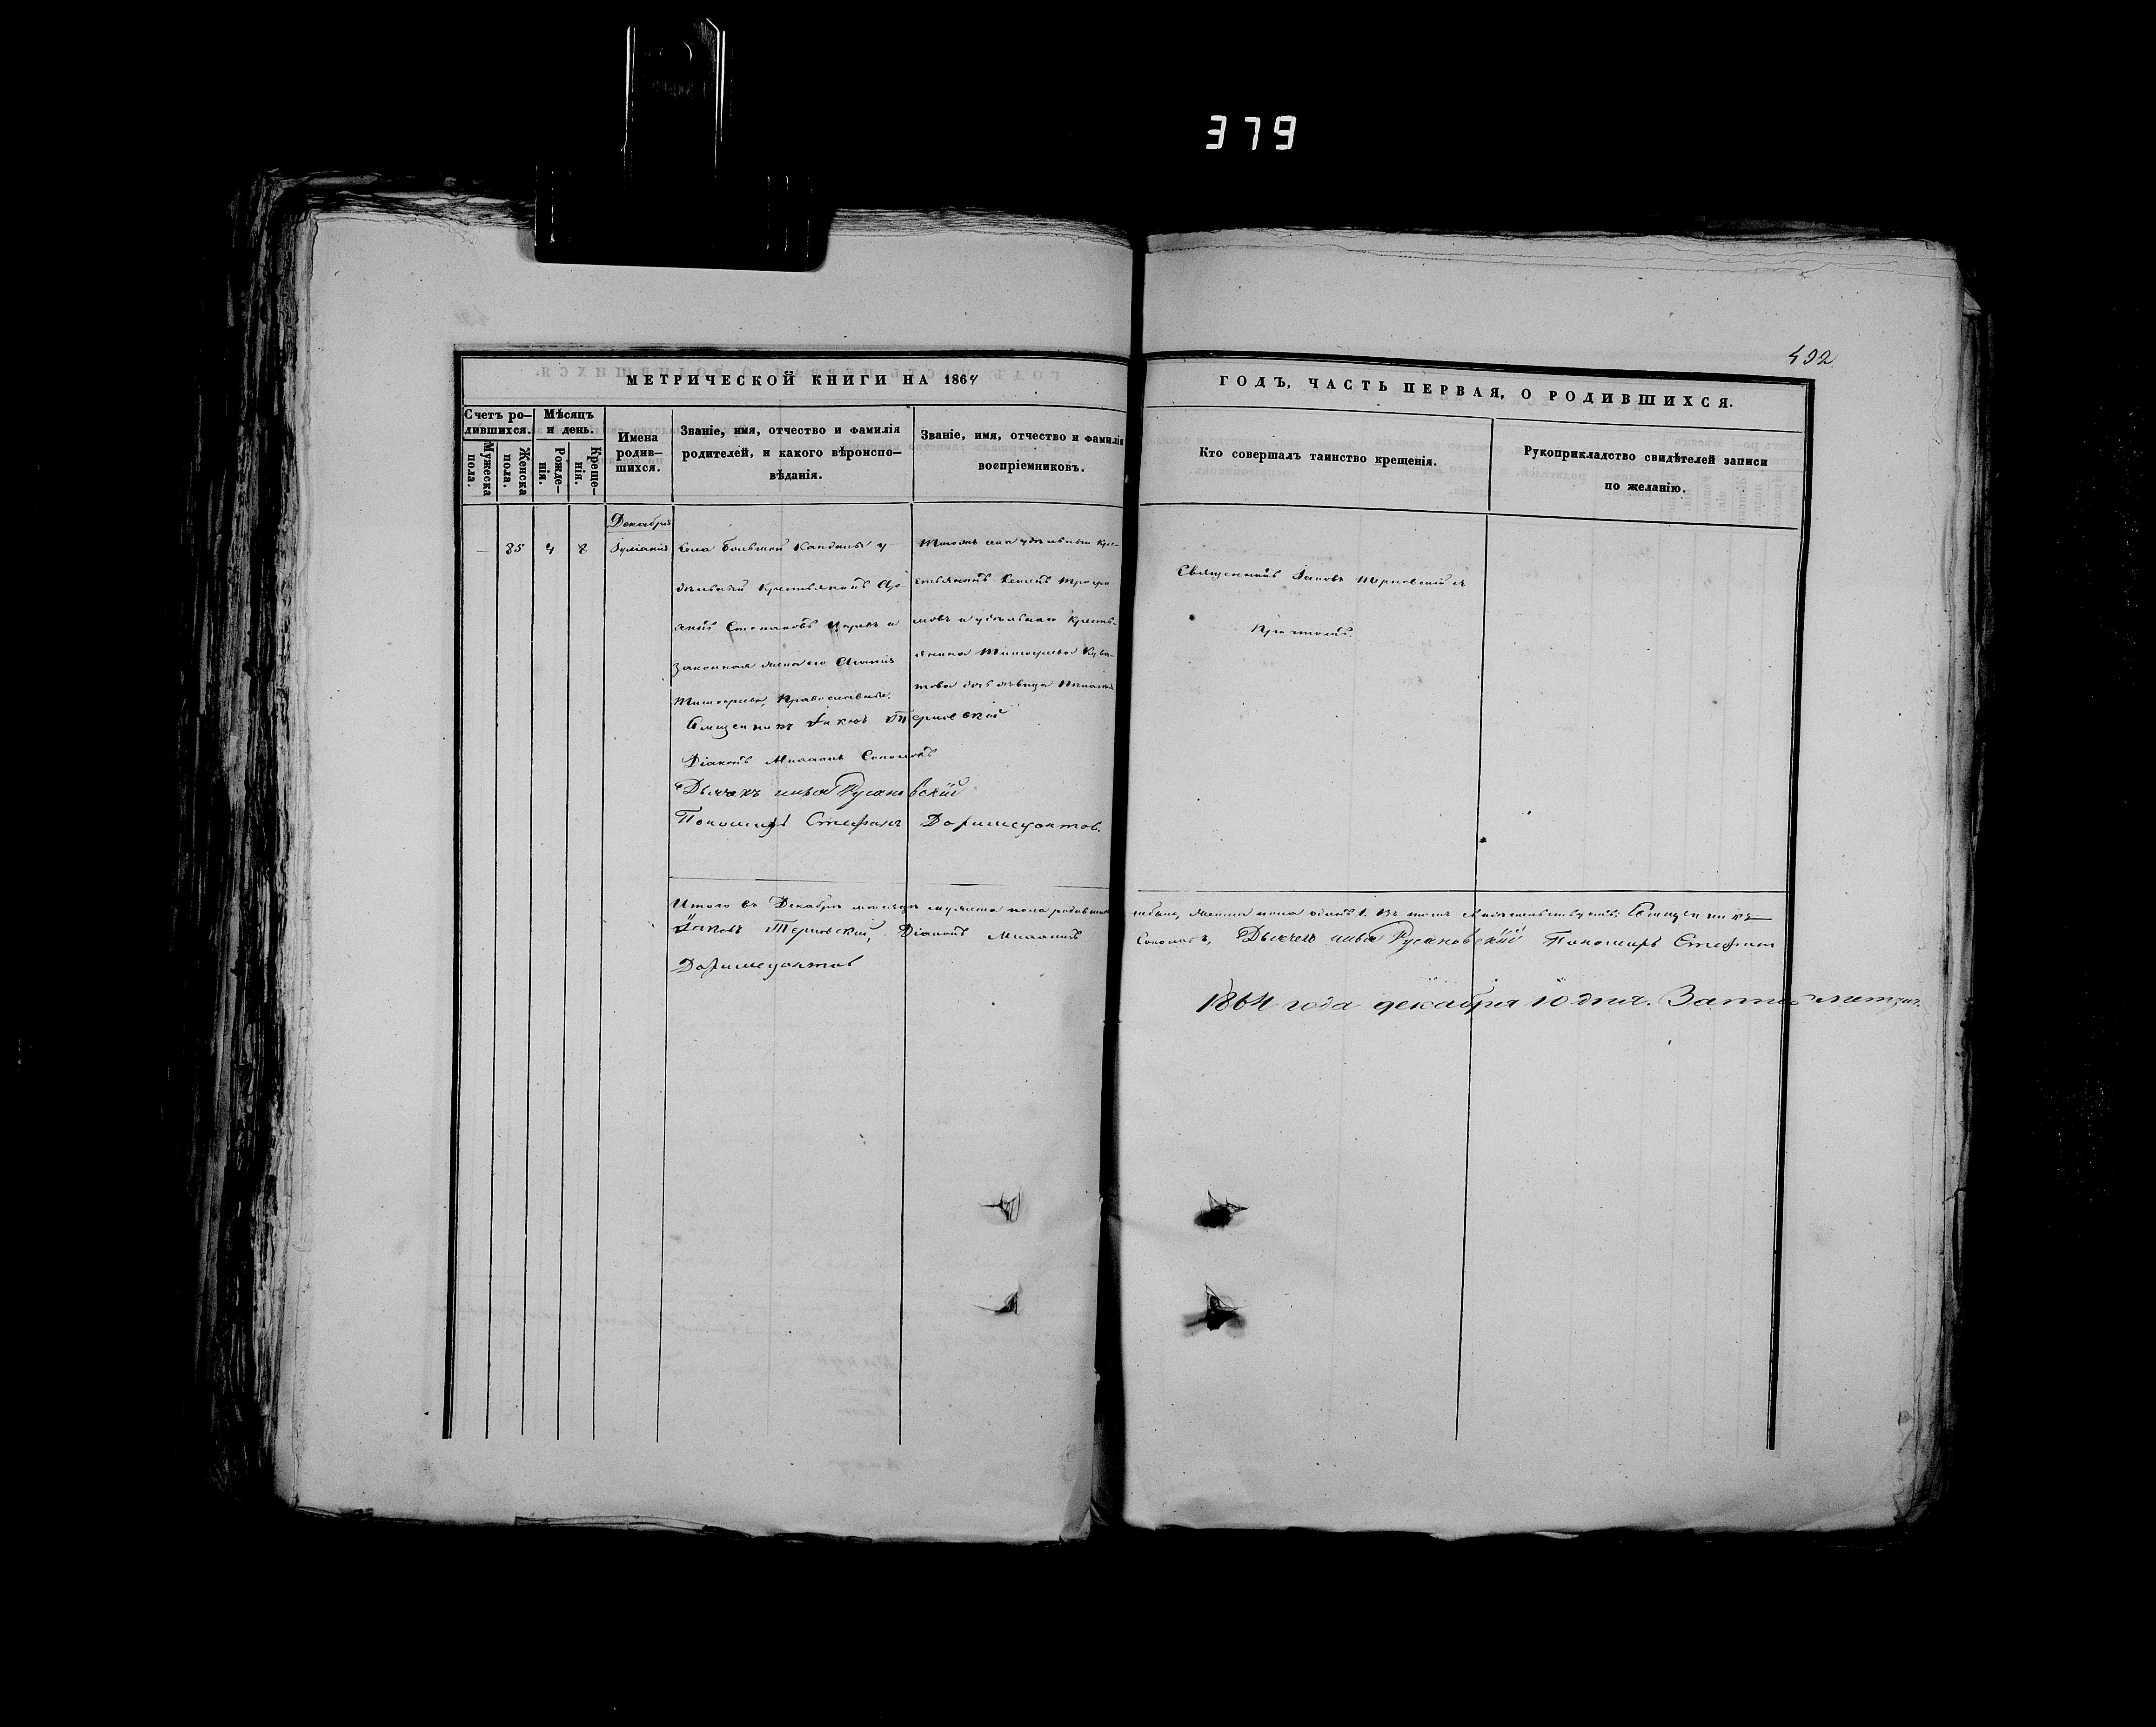 379
492
МЕТРИЧЕСКОЙ КНИГИ НА 1864
ГОДЪ, ЧАСТЬ ПЕРВАЯ, О РОДИВШИХСЯ.
Счетъ ро-
дившихся.
Мужеска
пола.
Женска
пола.
Мѣсяцъ
и день.
Рожде-
нія.
Креще-
нія.
Имена
родив-
шихся.
Званіе, имя, отчество и фамилія
родителей, и какого вѣроиспо-
вѣданія.
Званіе, имя, отчество и фамилія
воспріемниковъ.
Кто совершалъ таинство крещенія.
Рукоприкладство свидѣтелей записи
по желанію.
Декабрь
35
Іуліанія
Села Большой Кандалы у
дѣльный Крестьянинъ
Степановъ и
законная жена его
Тимофеева, Православные.
Тогоже села удѣльный Кре-
стьянинъ Трофи
мовъ и удѣльнаго Кресть-
янина Тимофея
дочь дѣвица
Священникъ Іаковъ Терновскій съ
Причтомъ.
Священникъ Іаковъ Терновскій
Діаконъ Михаилъ Соколовъ
Дьячекъ Русановскій
Пономарь Стефанъ Доримедонтов.
Итого въ Декабрѣ месяцѣ мужеска пола родивших
небыло, женска пола одна 1. Въ томъ свидѣтельствуемъ: Священникъ
Іаковъ Терновскій, Діаконъ Михаилъ
Соколовъ, Русановскій Пономарь Стефанъ
Доримедонтов
1864 года декабря 10 дня.